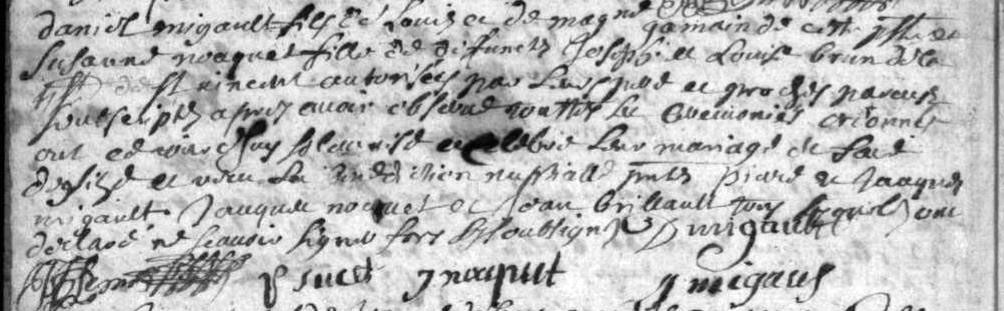 daniel migault fils de Louis et de magne gamain de cette psse et
Susanne noquet fille de defuncts Joseph et Louise brun de la
psse de st vincent autorisés par leurs et proches parens
soubscripts apres avoir observé touttes les ceremonies ordonnés
ont ce jour d'huy et celebré leur mariage en face
d'eglise et receu la benediction nuptialle pnts piere et Jacques
migault Jacques noquet et Jean brillault tous lesquels ont
declaré ne scavoir signer fors les soubsignés D migault
J noquet J migault